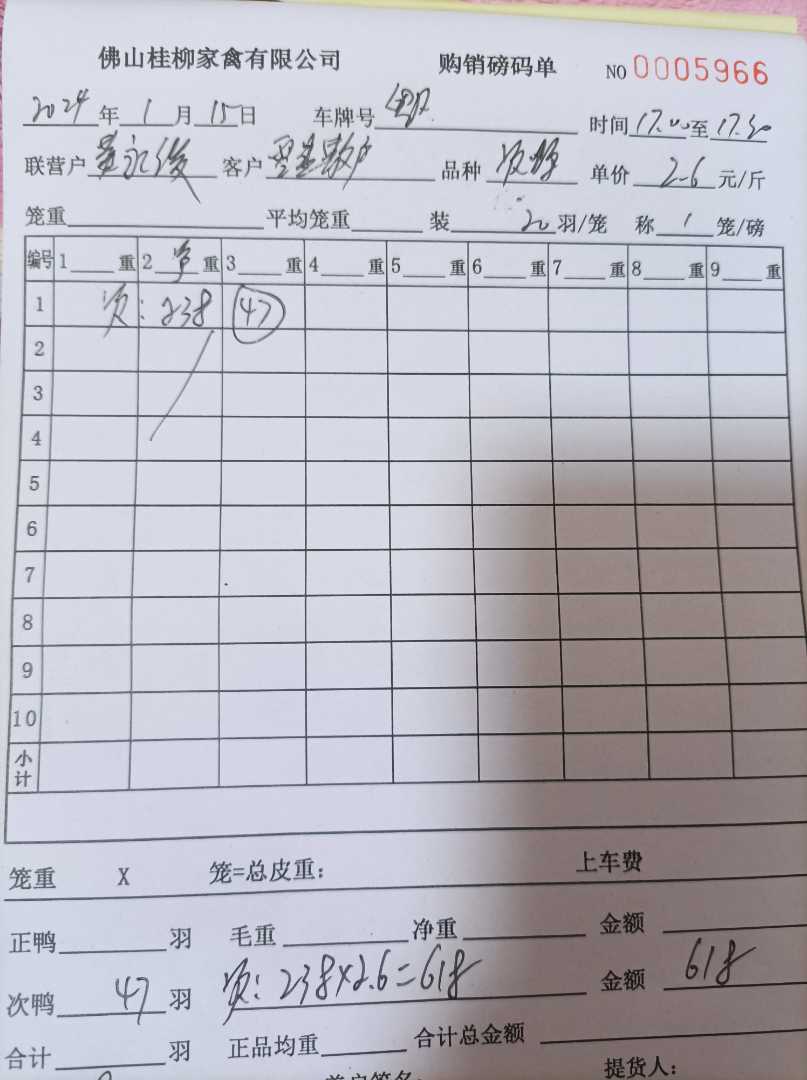 佛山桂柳家禽有限公司 购销磅码单 NO 0005966
2024年1月15日 车牌号 时间17.00至17.20
联营户 客户 散户 品种 次鸭 单价 2.6 元/斤
笼重 平均笼重 装 20 羽/笼 称 1 笼/磅
编号 1 重 2 净 重 3 重 4 重 5 重 6 重 7 重 8 重 9 重
1 次: 238 47
2
3
4
5
6
7
8
9
10
小计
笼重 X 笼=总皮重: 上车费
正鸭 羽 毛重 净重 金额
次鸭 47 羽 次: 238×2.6=618 金额 618
合计 羽 正品均重 合计总金额
提货人: